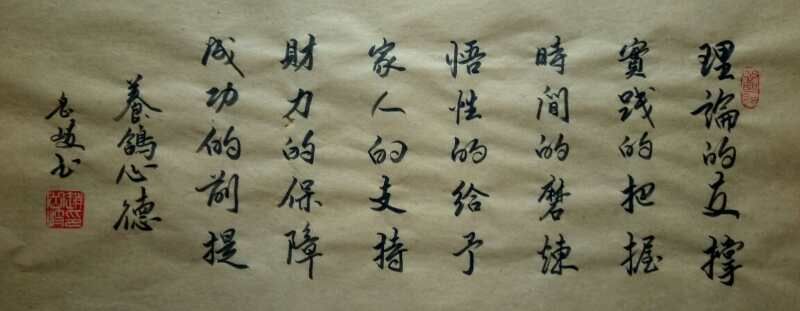 理論的支撐
實践的把握
時間的磨煉
悟性的給予
家人的支持
財力的保障
成功的前提
養鴿心德